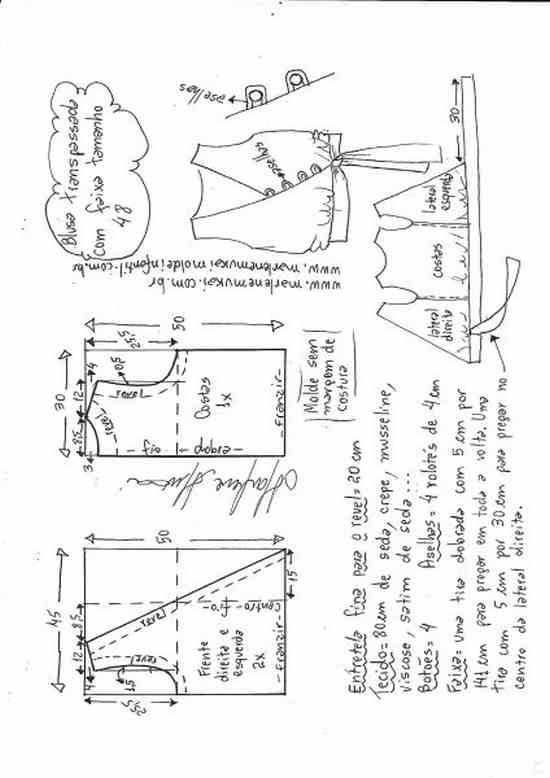 Blusa transpassada
com faixa tamanho
48
aselhas
aselhas
www.marlenemukai.com.br
www.marlenemukaimoldeinfantil.com.br
30
lateral
direita
costas
lateral
esquerda
30
8,5
12
4
3
0,5
25,5
50
revel
revel
Costas
1x
dobra
fio
-Franzir-
Molde sem
margem de
costura
45
12
8,5
4
1,5
25,5
50
15
revel
revel
centro
fio
Frente
direita e
esquerda
2x
-Franzir-
Entretela fina para o revel = 20 cm
Tecido = 80 cm de seda, crepe, musseline,
viscose, satim de seda...
Botões = 4 Aselhas = 4 rolotês de 4 cm
Faixa = Uma tira dobrada com 5 cm por
141 cm para pregar em toda a volta. Uma
tira com 5 cm por 30 cm para pregar no
centro da lateral direita.